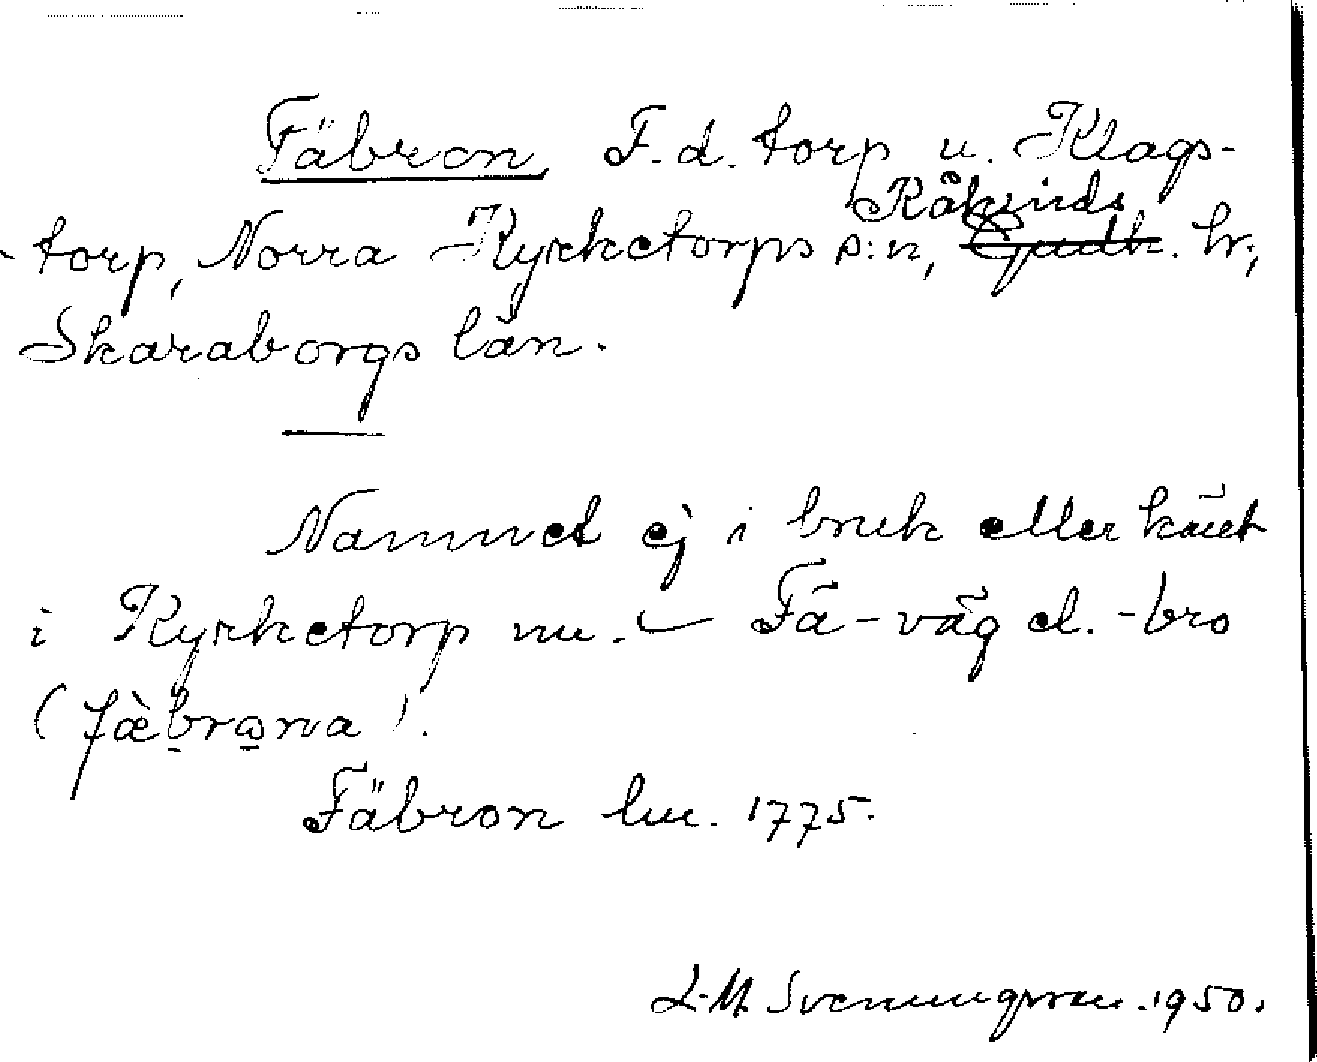 Fäbron F.d. torp u. Klags-
Kåkinds
torp, Norra Kyrketorps s:n, Gudh. hr,
Skaraborgs län.
Namnet ej i bruk eller känt
i Kyrketorp nu. – Fä-väg el. -bro
(fæ̀brωna).
Fäbron lm. 1775.
L-M. Svenungsson. 1950.